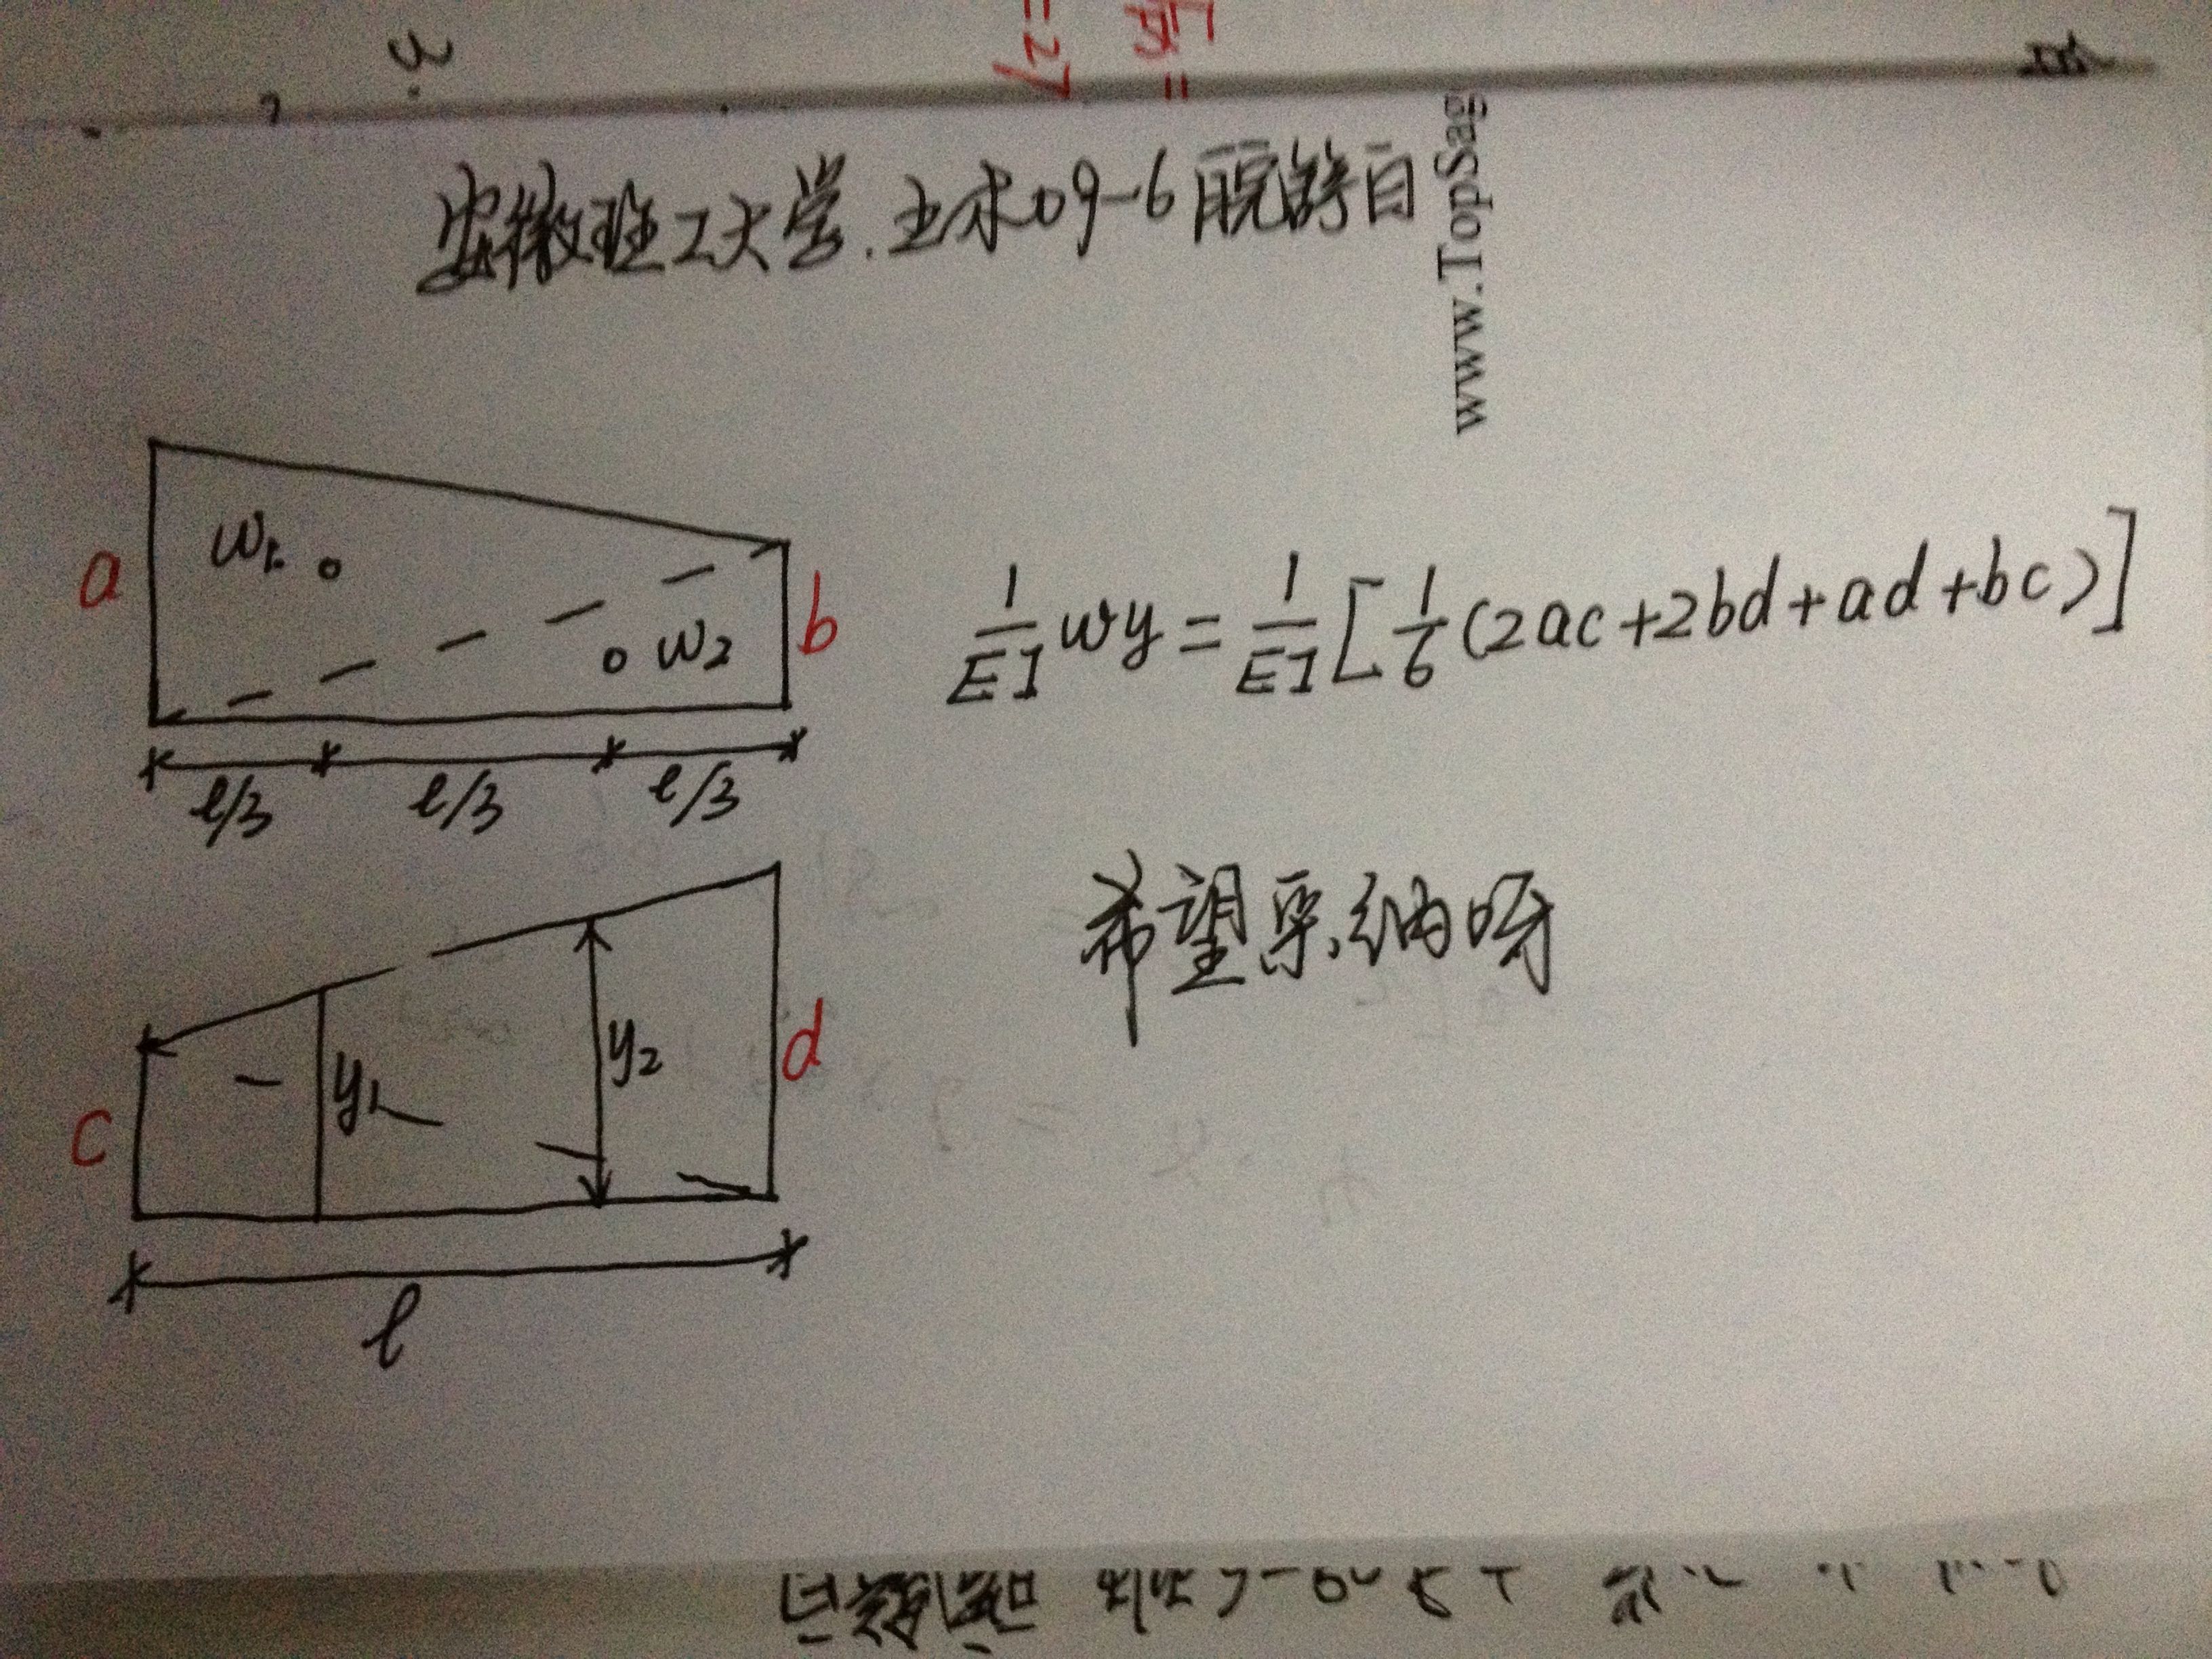 安徽理工大学.土木09-6
www.TopSag
a
w₁
w₂
b
l/3 l/3 l/3
1/EI wy = 1/EI [1/6 (2ac+2bd+ad+bc)]
希望采纳呀
c
y₁
y₂
d
l
=27